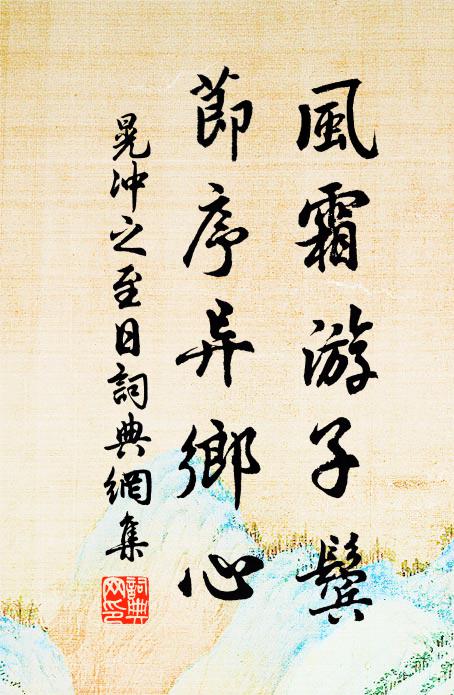 風霜游子鬓
節序异鄉心
晁冲之至日詞典網集
詞典